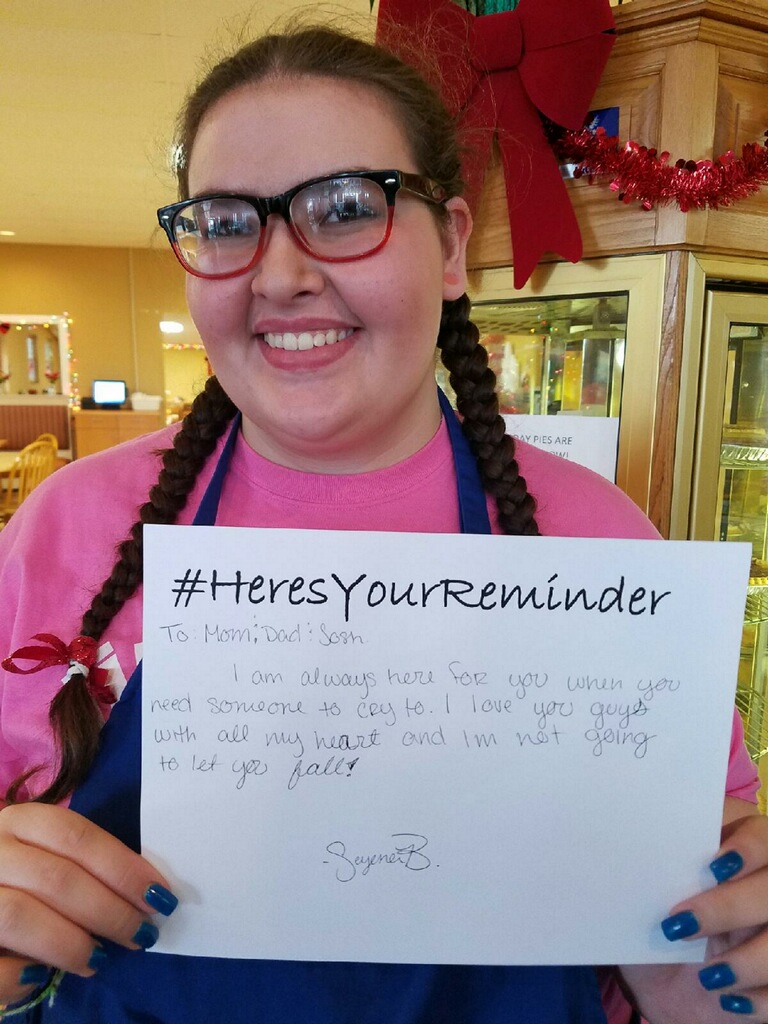 DAY PIES ARE
#HeresYourReminder
To: Mom; Dad; Josh
I am always here for you when you
need someone to cry to. I love you guys
with all my heart and Im not going
to let you fall!